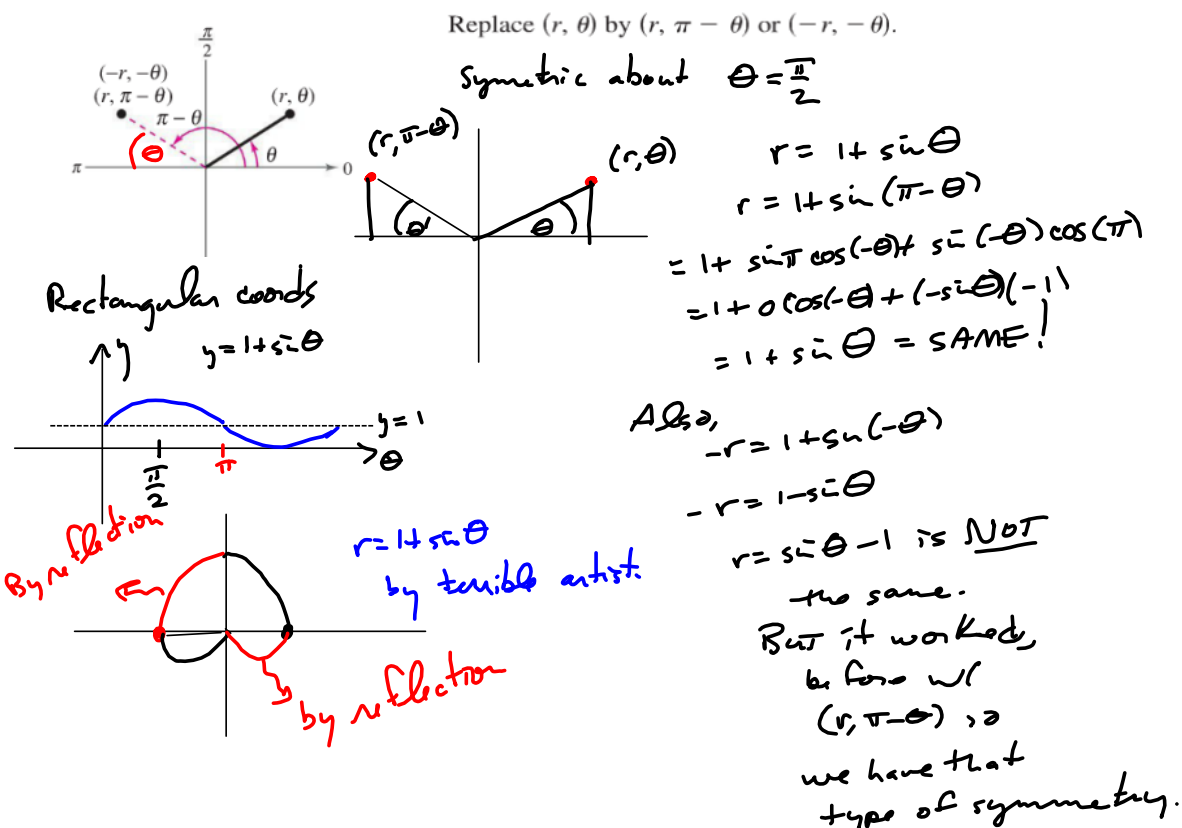 Replace (r, θ) by (r, π − θ) or (−r, − θ).
π/2
(−r, −θ)
(r, π − θ)
(r, θ)
π − θ
θ
θ
π
0
Symetric about θ = π/2
(r, π-θ)
(r, θ)
θ'
θ
r = 1+ sin θ
r = 1+ sin (π-θ)
= 1+ sin π cos(-θ)+ sin (-θ) cos(π)
= 1+ 0 cos(-θ) + (-sin θ)(-1)
= 1 + sin θ = SAME!
Rectangular coords
y
y = 1+ sin θ
y = 1
θ
π/2
π
Also,
-r = 1+ sin (-θ)
- r = 1-sin θ
r = sin θ -1 is NOT
the same.
But it worked,
before w/
(r, π-θ) so
we have that
type of symmetry.
By reflection
r = 1+ sin θ
by terrible artist.
by reflection